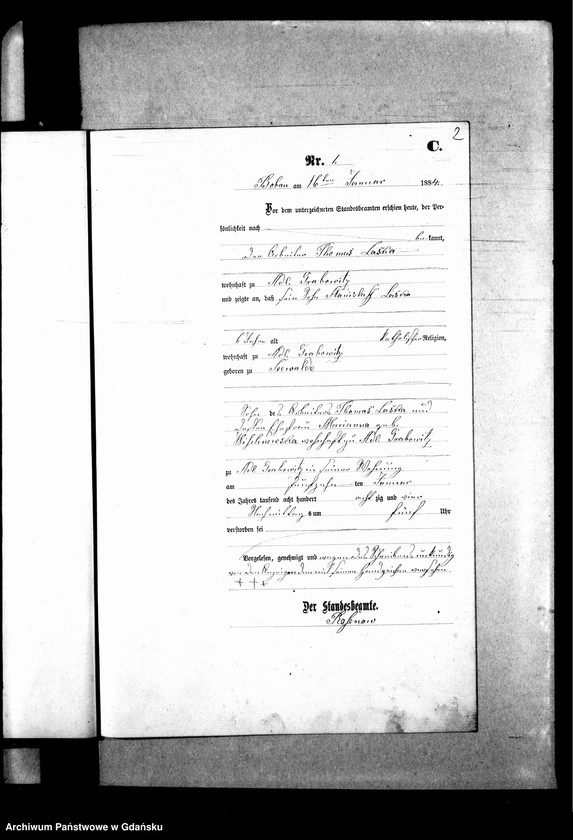 2
C.
Nr. 1.
Bobau am 16ten Januar 1884.
Vor dem unterzeichneten Standesbeamten erschien heute, der Per-
sönlichkeit nach
bekannt,
der Arbeiter Thomas Laska
wohnhaft zu Adl. Grabowitz
und zeigte an, daß sein Sohn Stanislaff Laska
6 Jahre alt katholischer Religion,
wohnhaft zu Adl. Grabowitz
geboren zu
Sohn des Arbeiters Thomas Laska und
dessen Ehefrau Marianna geb.
wohnhaft zu Adl. Grabowitz
zu Adl Grabowitz in seiner Wohnung
am fünfzehn ten Januar
des Jahres tausend acht hundert acht zig und vier
Nachmittags um fünf Uhr
verstorben sei
Vorgelesen, genehmigt und wegen des Schreibens unkundig
von dem Anzeigenden mit seinem Handzeichen versehen
+ + +
Der Standesbeamte.
Archiwum Państwowe w Gdańsku